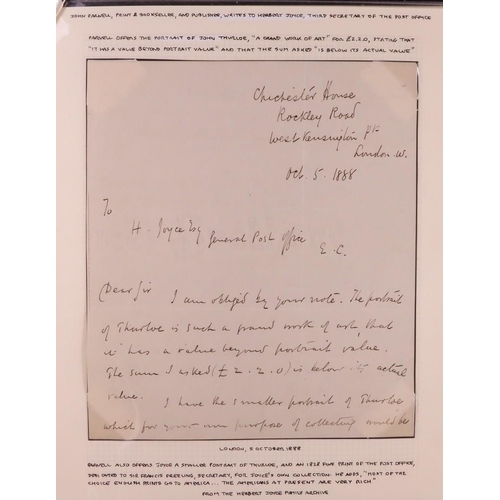 JOHN PARNELL, PRINT & BOOKSELLER, AND PUBLISHER, WRITES TO HERBERT JOYCE, THIRD SECRETARY OF THE POST OFFICE
PARNELL OFFERS THE PORTRAIT OF JOHN THURLOE, "A GRAND WORK OF ART" FOR £2.2.0, STATING THAT
"IT HAS A VALUE BEYOND PORTRAIT VALUE" AND THAT THE SUM ASKED "IS BELOW ITS ACTUAL VALUE"
Chichester House
Rockley Road
West Kensington Pk
London. W.
Oct. 5. 1888
To
H. Joyce Esq
General Post Office
E. C.
Dear Sir I am obliged by your note. The portrait
of Thurloe is such a grand work of art, that
it has a value beyond portrait value.
The sum I asked (£2.2.0) is below its actual
value. I have the smaller portrait of Thurloe
which for your own purpose of collecting would be
LONDON, 5 OCTOBER, 1888
PARNELL ALSO OFFERS JOYCE A SMALLER PORTRAIT OF THURLOE, AND AN 1828 FINE PRINT OF THE POST OFFICE,
DEDICATED TO SIR FRANCIS FREELING, SECRETARY, FOR JOYCE'S OWN COLLECTION. HE ADDS, "MOST OF THE
CHOICE ENGLISH PRINTS GO TO AMERICA... THE AMERICANS AT PRESENT ARE VERY RICH"
FROM THE HERBERT JOYCE FAMILY ARCHIVE